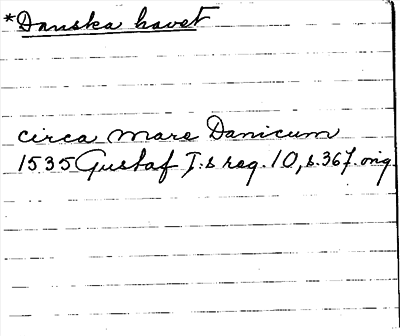 *Danska havet
circa mare Danicum
1535 Gustaf I:s reg. 10, s. 367. orig.